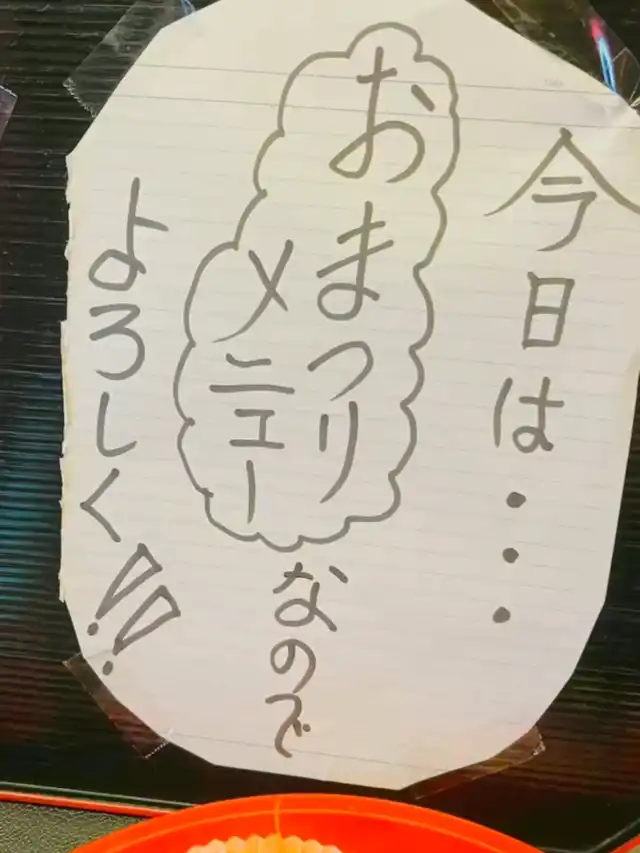 今日は・・・
おまつり
メニュー
なので
よろしく!!